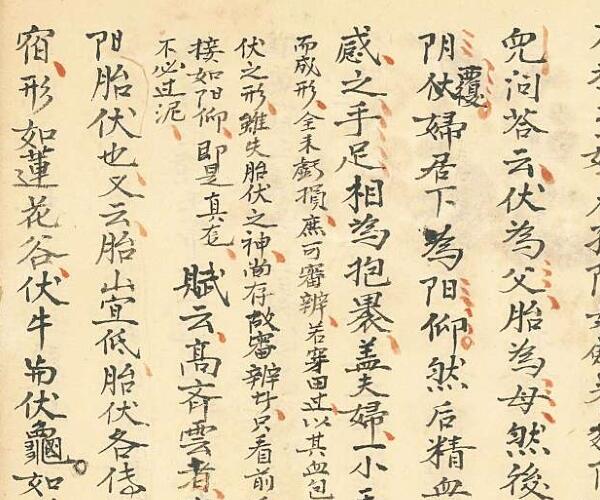 兜问荅云伏為父胎為母然後
阴仗覆婦居下為阳仰然后精血
感之手足相為抱褁盖夫婦一小
而成形全未虧損庶可審辨若穿田过以其血包
伏之形雖失胎伏之神尚存故審辨只看前
接如阳仰即是真
不必过泥
賦云高齐雲者
阳胎伏也又云胎山宜低胎伏各
宿形如蓮花谷伏牛而伏龜如